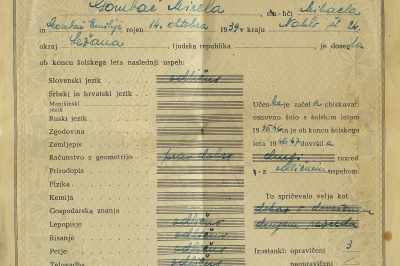 Gombač Mirela, sin - hči Mihaela
in Gombač Emilije, rojen 14. oktobra 1939. v kraju Naklo št 24.
okraj Sežana, ljudska republika, je dosegla
ob koncu šolskega leta naslednji uspeh:
Slovenski jezik odlično
Srbski in hrvatski jezik
Manjšinski jezik
Ruski jezik
Zgodovina
Zemljepis
Računstvo z geometrijo prav dobro
Prirodopis
Fizika
Kemija
Gospodarska znanja
Lepopisje odlično
Risanje odlično
Petje odlično
Telovadba odlično
Učenka je začela obiskovati
osnovno šolo s šolskim letom
1945/46 in je ob koncu šolskega
leta 1946/47 dovršila
drugi razred
z odličnim uspehom.
To spričevalo velja kot
dokaz o dovršenem
drugem razredu
Izostanki: opravičeni 3
neopravičeni